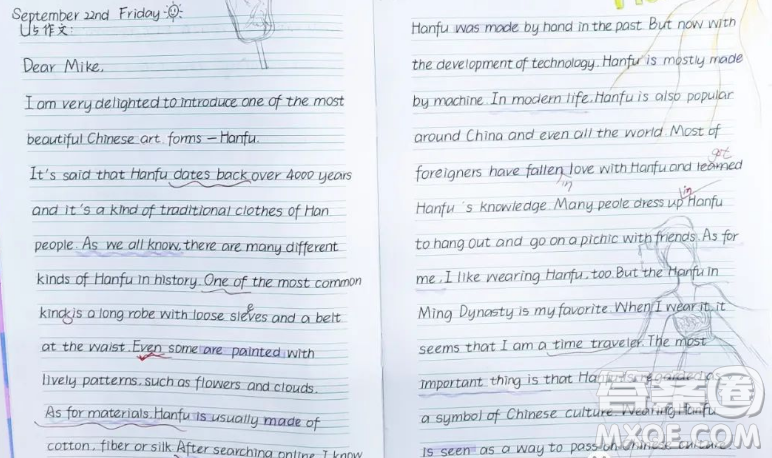 September 22nd Friday
U5作文:
Dear Mike,
I am very delighted to introduce one of the most
beautiful Chinese art forms – Hanfu.
It's said that Hanfu dates back over 4000 years
and it's a kind of traditional clothes of Han
people. As we all know, there are many different
kinds of Hanfu in history. One of the most common
kinds is a long robe with loose sleves and a belt
e
at the waist. Even some are painted with
lively patterns, such as flowers and clouds.
As for materials, Hanfu is usually made of
cotton, fiber or silk. After searching online, I know
Hanfu was made by hand in the past. But now with
the development of technology, Hanfu is mostly made
by machine. In modern life, Hanfu is also popular
around China and even all the world. Most of
got
foreigners have fallen love with Hanfu and learned
in
in
Hanfu's knowledge. Many peole dress up Hanfu
to hang out and go on a pichic with friends. As for
me, I like wearing Hanfu, too. But the Hanfu in
Ming Dynasty is my favorite. When I wear it, it
seems that I am a time traveler. The most
important thing is that Hanfu is regarded as
a symbol of Chinese culture. Wearing Hanfu
is seen as a way to pass on Chinese culture.
答案圈
MXQE.COM